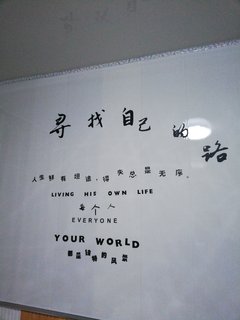 寻找自己的路
人生鲜有坦途,得失总是无序。
LIVING HIS OWN LIFE
每个人
EVERYONE
YOUR WORLD
都是独特的风景